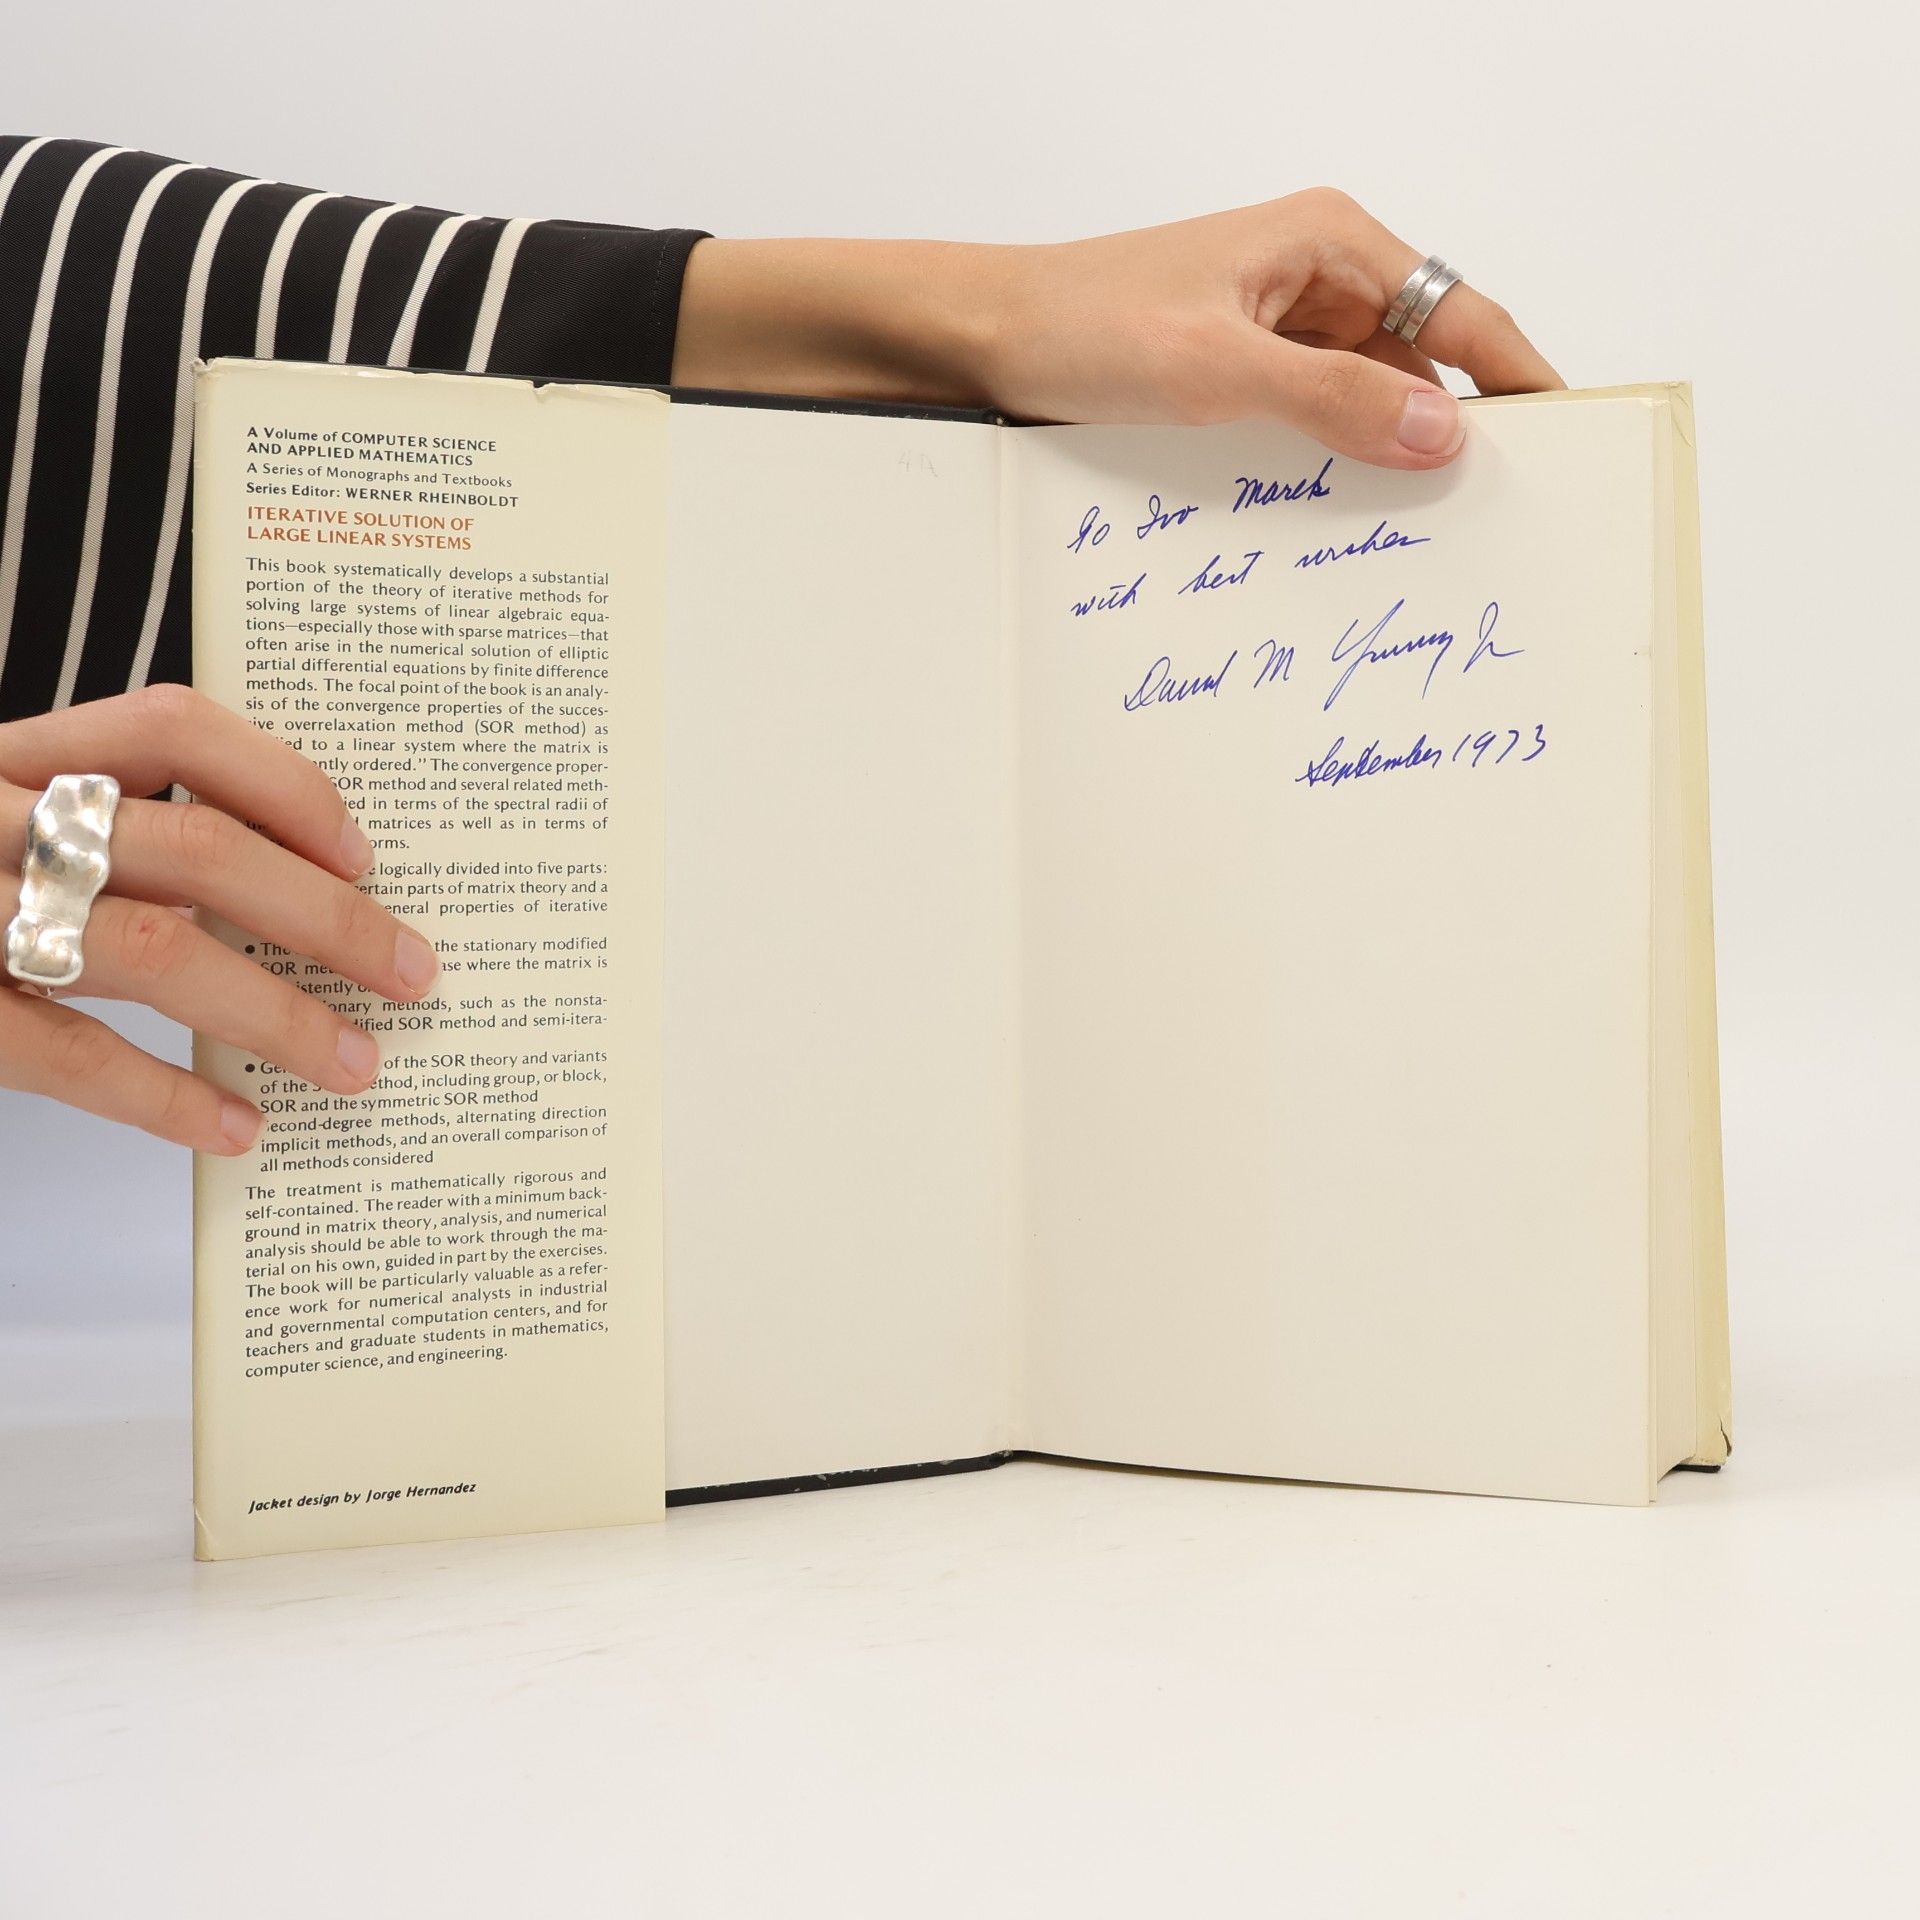 A Volume of COMPUTER SCIENCE
AND APPLIED MATHEMATICS
A Series of Monographs and Textbooks
Series Editor: WERNER RHEINBOLDT
ITERATIVE SOLUTION OF
LARGE LINEAR SYSTEMS
This book systematically develops a substantial
portion of the theory of iterative methods for
solving large systems of linear algebraic equa-
tions—especially those with sparse matrices—that
often arise in the numerical solution of elliptic
partial differential equations by finite difference
methods. The focal point of the book is an analy-
sis of the convergence properties of the succes-
overrelaxation method (SOR method) as
to a linear system where the matrix is
ordered." The convergence proper-
SOR method and several related meth-
in terms of the spectral radii of
matrices as well as in terms of
logically divided into five parts:
parts of matrix theory and a
properties of iterative
• the stationary modified
SOR where the matrix is
methods, such as the nonsta-
SOR method and semi-itera-
• of the SOR theory and variants
of the including group, or block,
SOR and the symmetric SOR method
methods, alternating direction
implicit methods, and an overall comparison of
all methods considered
The treatment is mathematically rigorous and
self-contained. The reader with a minimum back-
ground in matrix theory, analysis, and numerical
analysis should be able to work through the ma-
terial on his own, guided in part by the exercises.
The book will be particularly valuable as a refer-
ence work for numerical analysts in industrial
and governmental computation centers, and for
teachers and graduate students in mathematics,
computer science, and engineering.
Jacket design by Jorge Hernandez
4A
To Ivo Marek
with best wishes
David M Young Jr
September 1973